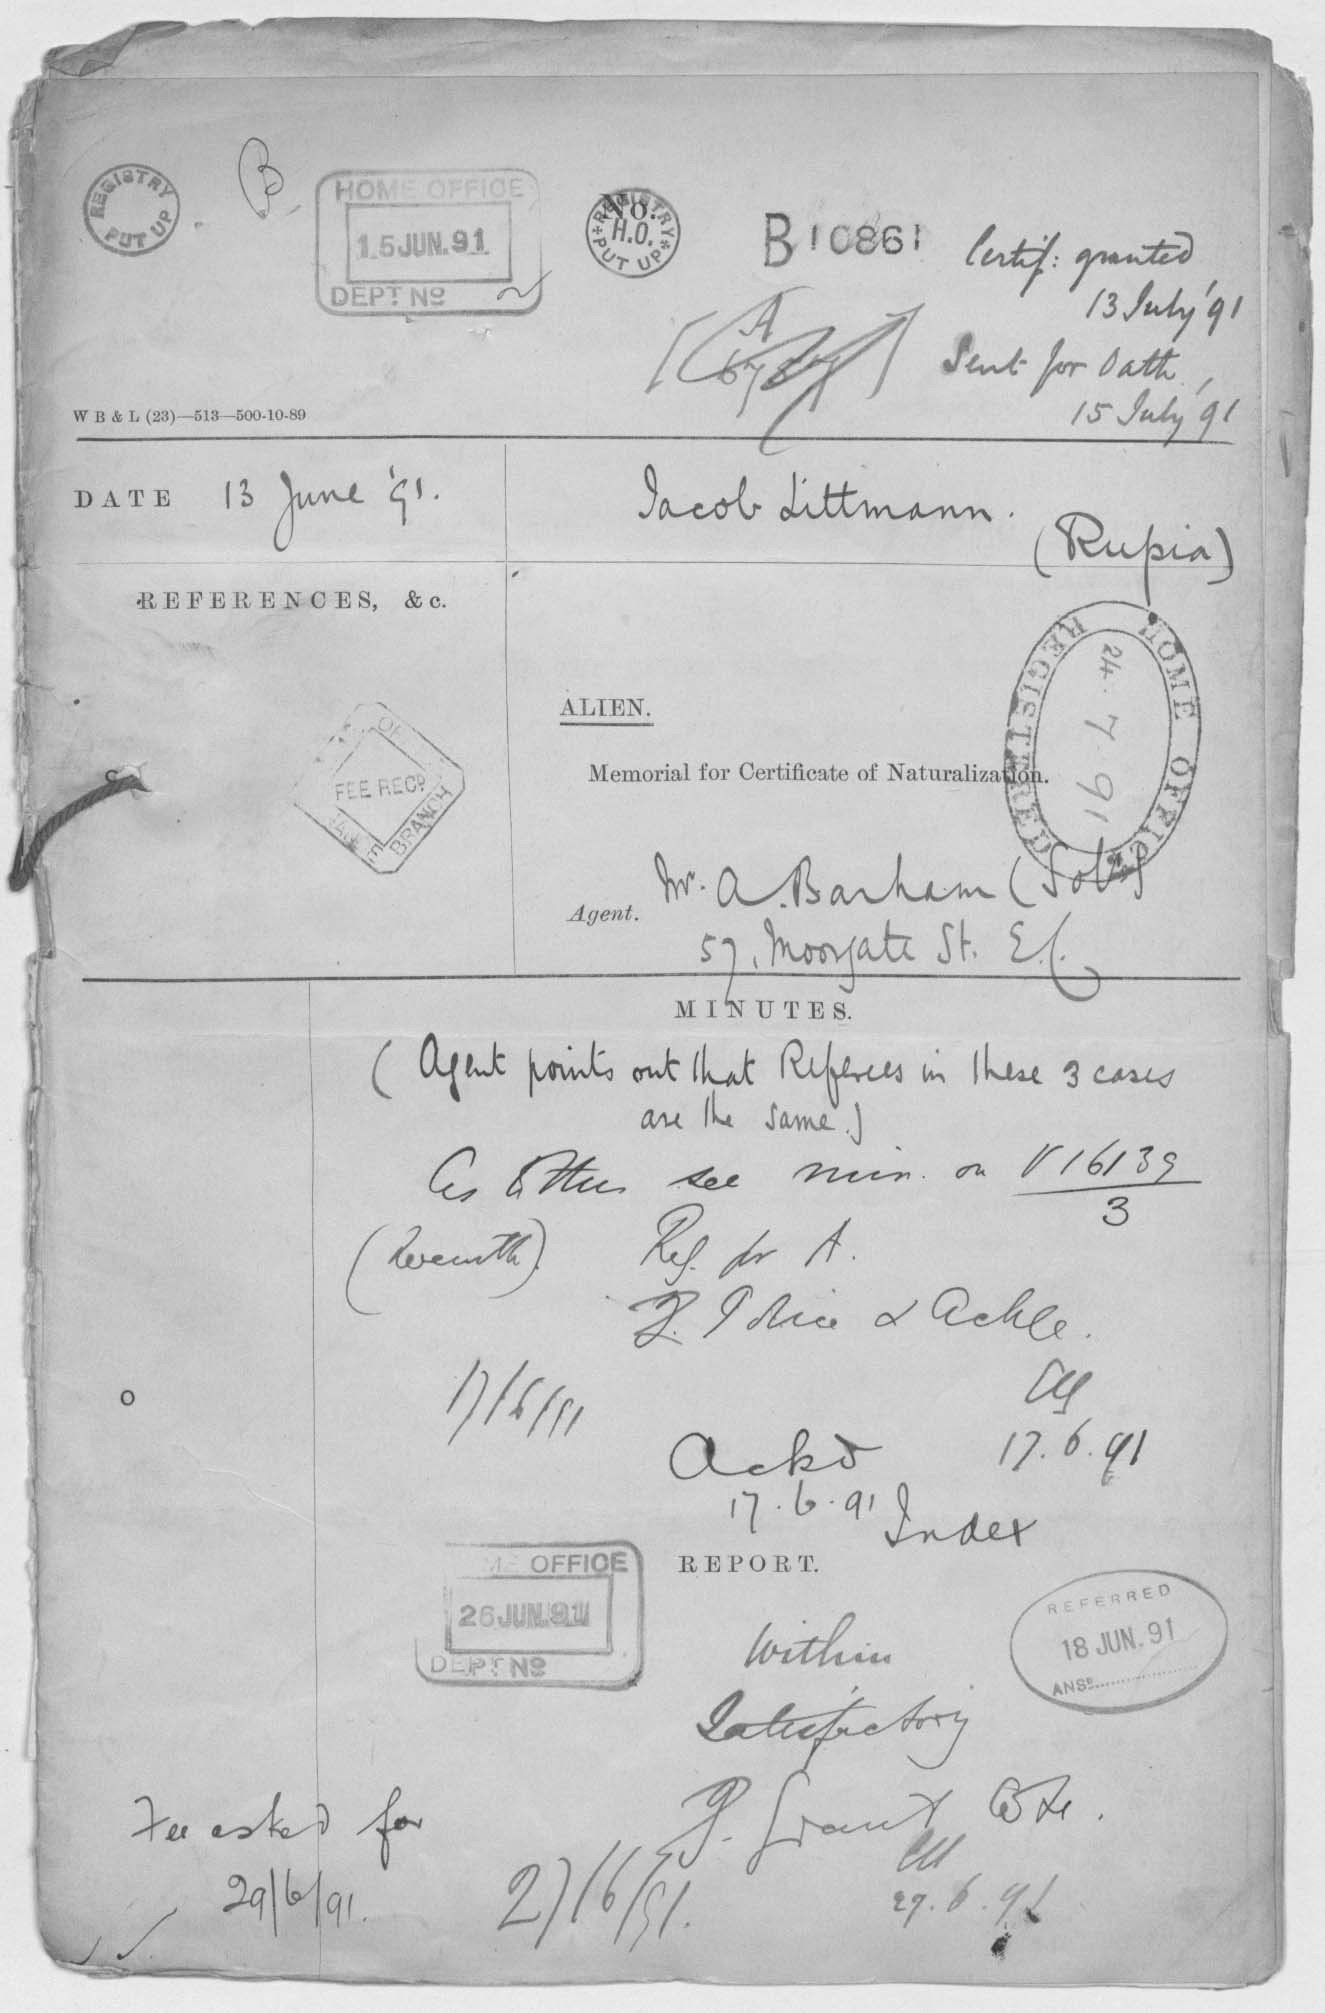 REGISTRY PUT UP
B
HOME OFFICE
15 JUN. 91
DEPT. No
REGISTRY PUT UP
No.
H.O.
B10861
Certif: granted
13 July '91
Sent for Oath
15 July '91
[A
]
W B & L (23)—513—500-10-89
DATE 13 June '91.
Jacob Littmann.
(Rupia)
REFERENCES, &c.
ALIEN.
Memorial for Certificate of Naturalization.
HOME OFFICE
24.7.91
REGISTERED
FEE RECD
BRANCH
Agent. Mr. A. Barham (Solr)
57, Moorgate St. E.C.
MINUTES.
(Agent points out that Referees in these 3 cases
are the same.)
As to this see min. on V16139/3
Ref. for A.
? Police & Ackle.
17/6/91
17.6.91
Ackd
17.6.91
Index
HOME OFFICE
26 JUN. 91
DEPT No
REPORT.
REFERRED
18 JUN. 91
ANSD
Within
Satisfactory
? Grant Cte.
27/6/91.
27.6.91
Fee asked for
29/6/91.